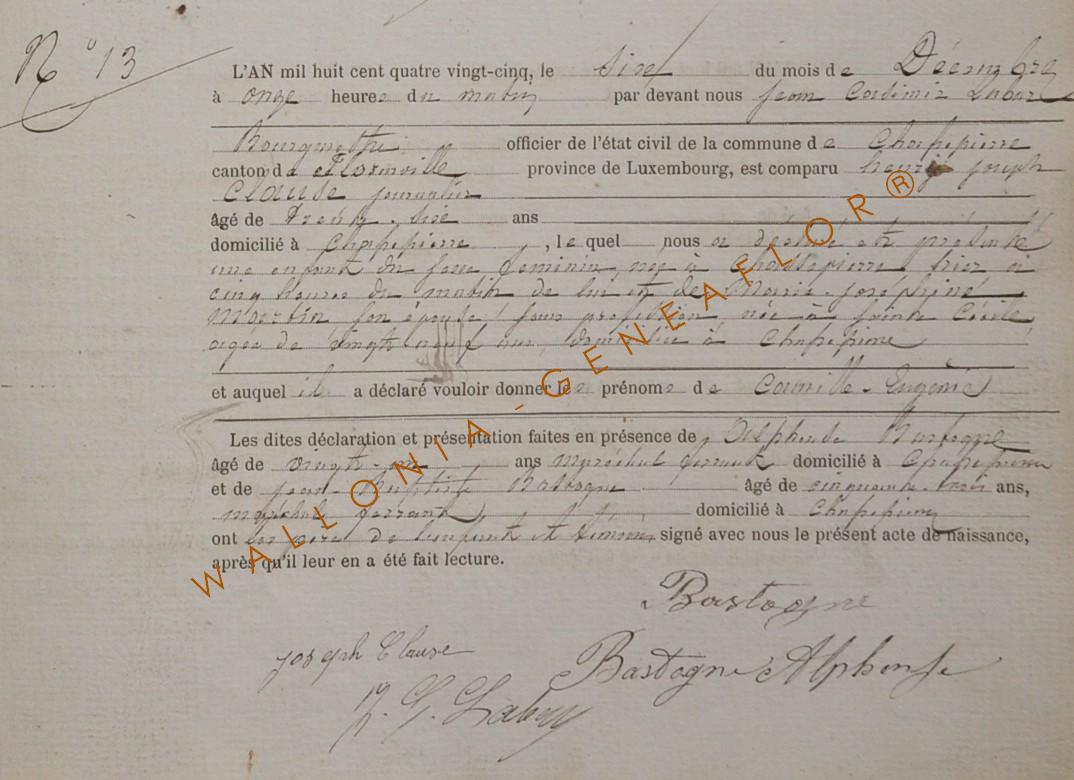 N° 13
L'AN mil huit cent quatre vingt-cinq, le six du mois de Décembre
à onze heures du matin par devant nous Jean Casimir
Bourgmestre officier de l'état civil de la commune de Chassepierre
canton de Florenville province de Luxembourg, est comparu henry joseph
Clause journalier
âgé de trente-six ans
domicilié à Chassepierre, lequel nous a déclaré et présenté
une enfant du sexe féminin, née à Chassepierre, hier à
cinq heures du matin de lui et de Marie-Josephine
Martin son épouse, sans profession née à sainte Cécile
agée de vingt neuf ans, domiciliée à Chassepierre
et auquel il a déclaré vouloir donner les prénoms de Camille-Eugénie
Les dites déclaration et présentation faites en présence de Alphonse Bastogne
âgé de vingt-un ans maréchal ferrant domicilié à Chassepierre
et de Jean-Baptiste Bastogne âgé de cinquante-trois ans,
maréchal ferrant domicilié à Chassepierre
ont les père de l'enfant et témoins signé avec nous le présent acte de naissance,
après qu'il leur en a été fait lecture.
Bastogne
Joseph Clause
Bastogne Alphonse
WALLONIA-GENEAFLOR®